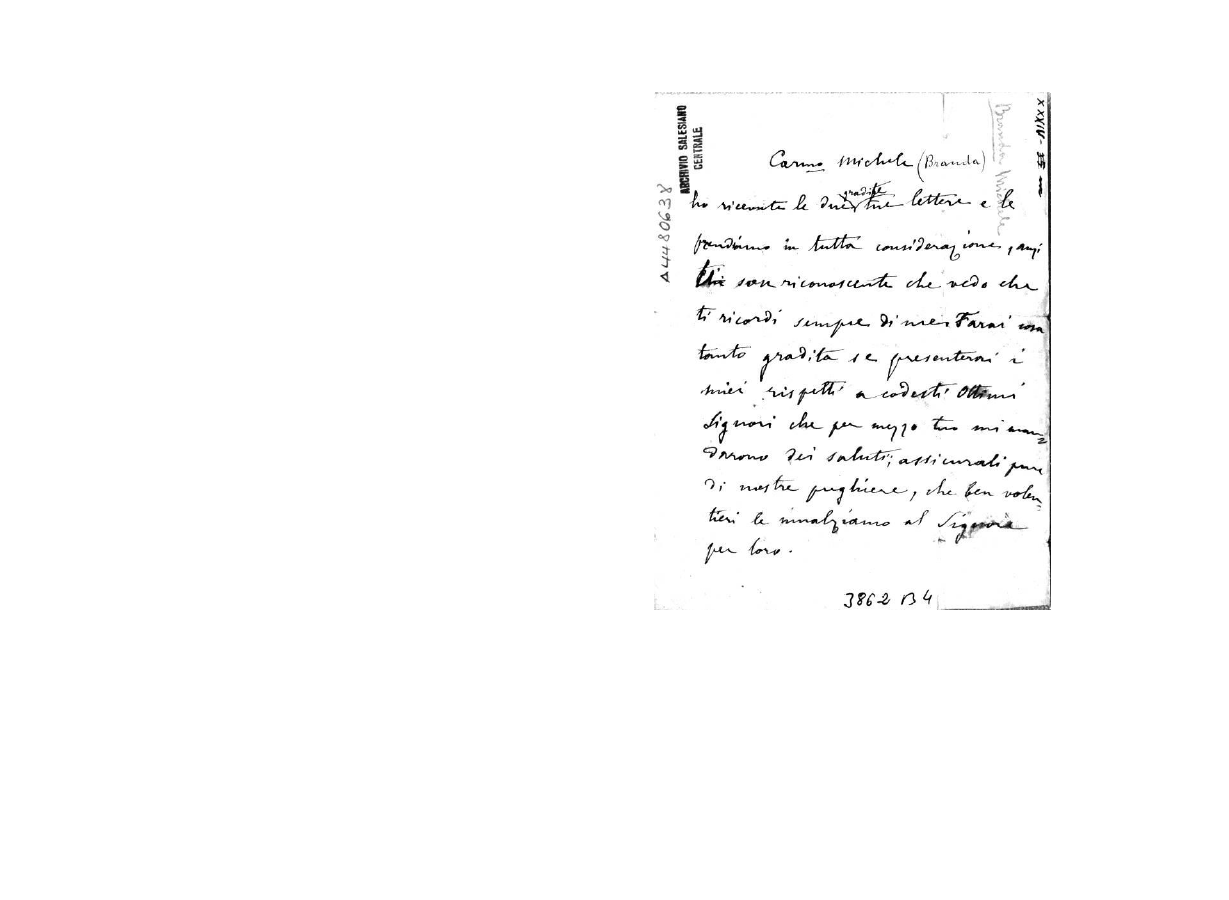 ARCHIVIO SALESIANO
CENTRALE
A4480638
Branda Michele
Carmo Michele (Branda)
gradite
ho ricevute le due tue lettere e le
prendiamo in tutta considerazione, anzi
ti son riconoscente che vedo che
ti ricordi sempre di me. Farai cosa
tanto gradita se presenterai i
miei rispetti a codesti Ottimi
Signori che per mezzo tuo mi man-
darono dei saluti; assicurali pure
di nostre preghiere, che ben volen-
tieri le innalziamo al Signore
per loro.
3862 B4